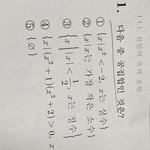 1. 다음 중 공집합인 것은?
① {x|x²<-2, x는 실수}
② {x|x는 가장 작은 소수}
③ {x|x<1/2, x는 정수}
④ {x|(x²+1)(x²+2)>0, x
⑤ {∅}